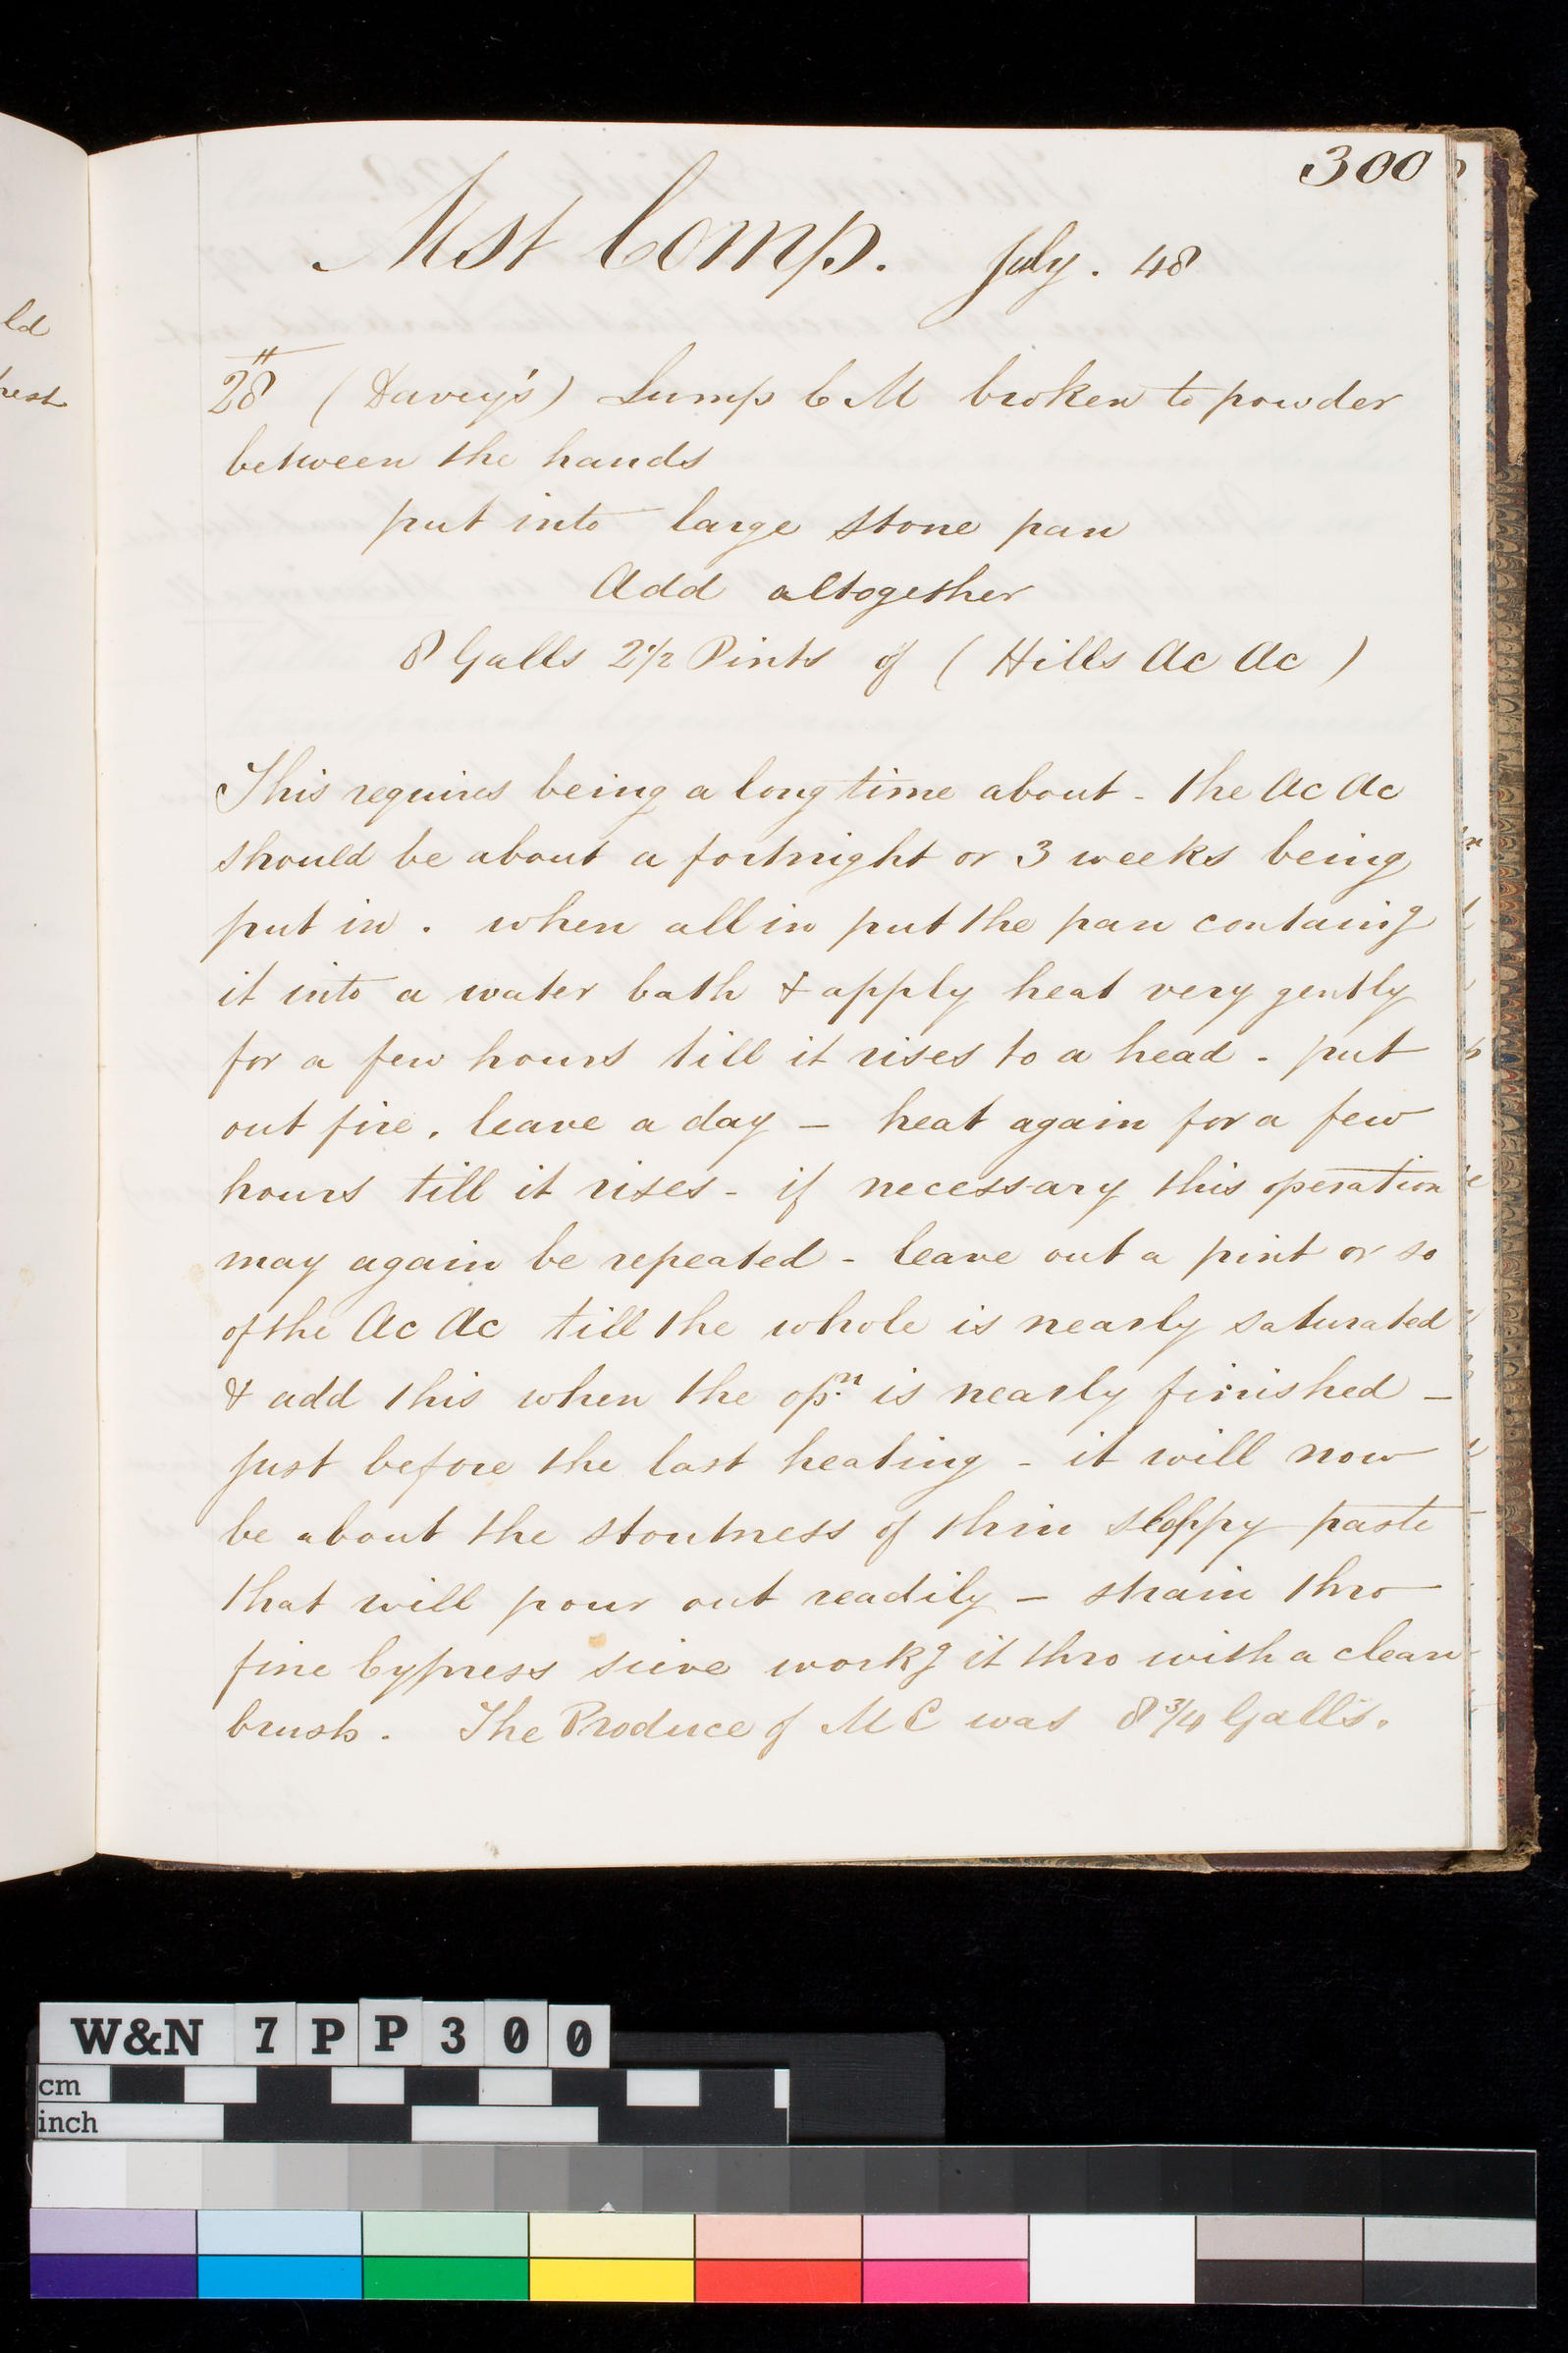 300
Mst Comp. July. 48
28 (Davey's) Lump C M broken to powder
between the hands
put into large stone pan
Add altogether
8 Galls 2 1/2 Pints of (Hills Ac Ac)
This requires being a long time about - the Ac Ac
should be about a fortnight or 3 weeks being
put in. when all in put the pan containg
it into a water bath & apply heat very gently
for a few hours till it rises to a head - put
out fire. leave a day - heat again for a few
hours till it rises - if necessary this operation
may again be repeated - leave out a pint or so
of the Ac Ac till the whole is nearly saturated
& add this when the opn. is nearly finished -
just before the last heating - it will now
be about the stoutness of thin sloppy paste
that will pour out readily - strain thro
fine Cypress sieve workg it thro with a clean
brush. The Produce of M C was 8 3/4 Galls.
ld
hest
W&N 7PP300
cm
inch